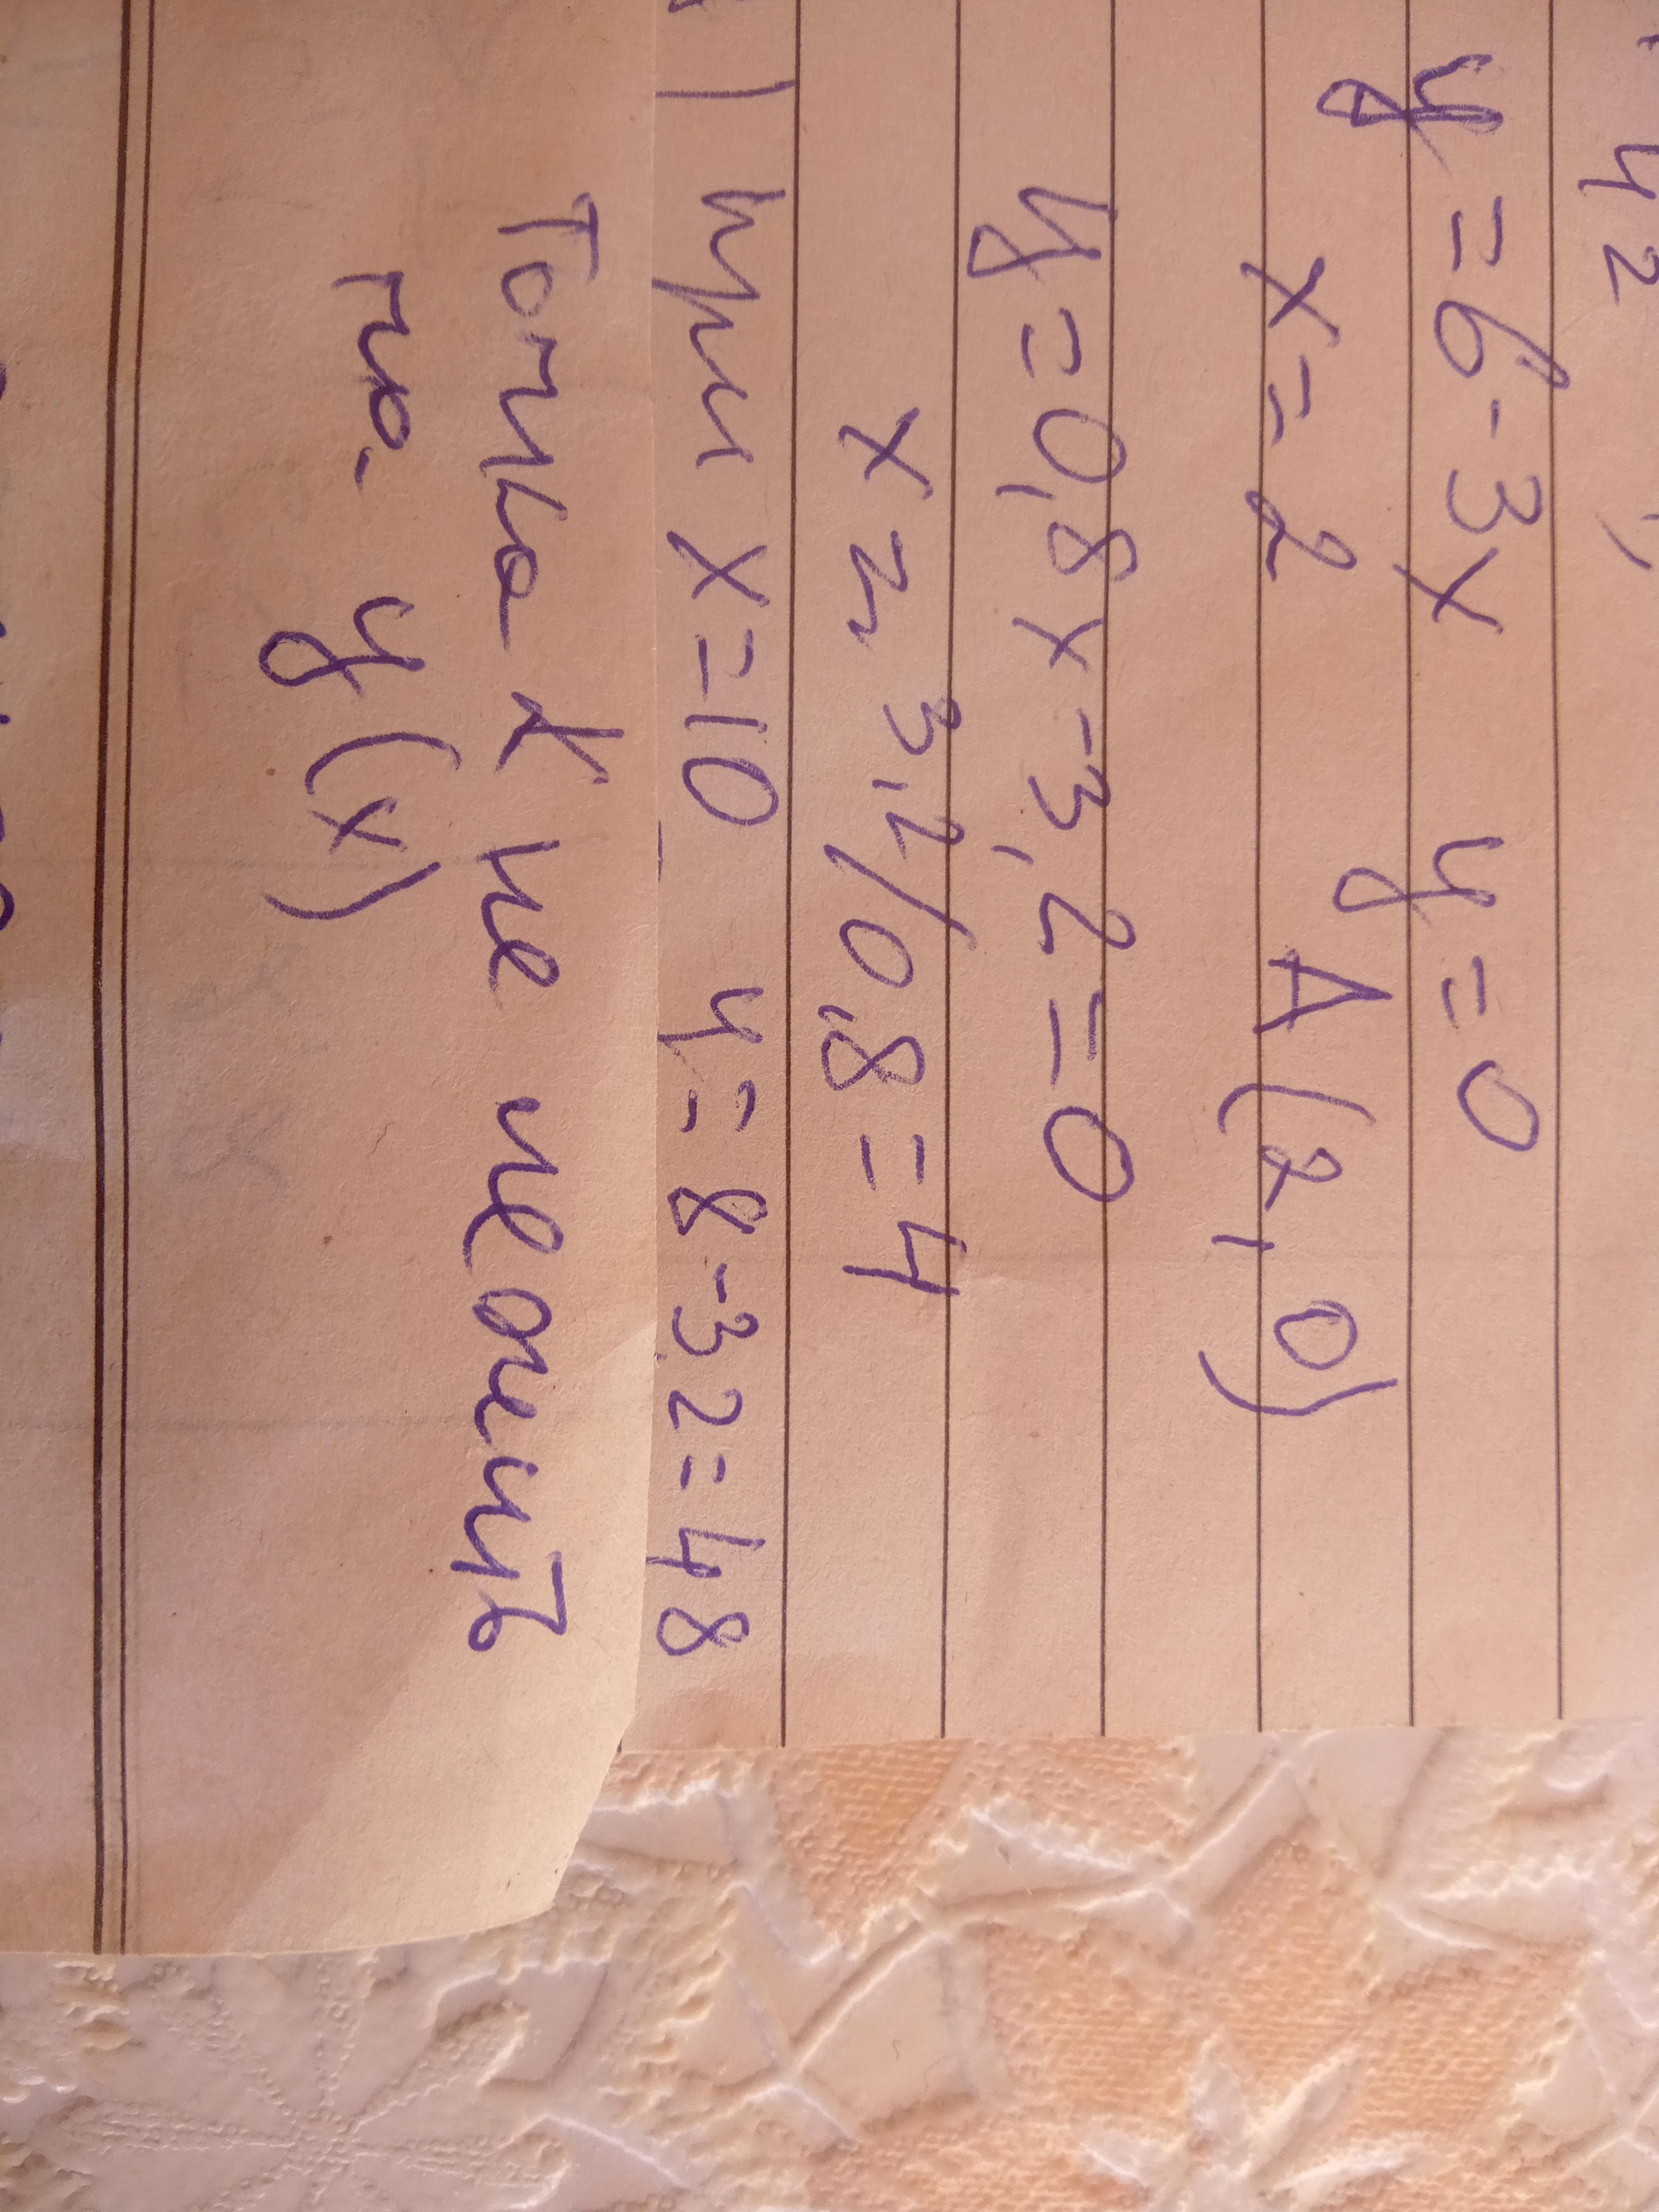 y = 6-3x y = 0
x = 2 A(2,0)
y = 0,8x -3,2 = 0
x = 3,2/0,8 = 4
) при x=10 y= 8-3.2=48
Точка К не лежить
y(x)